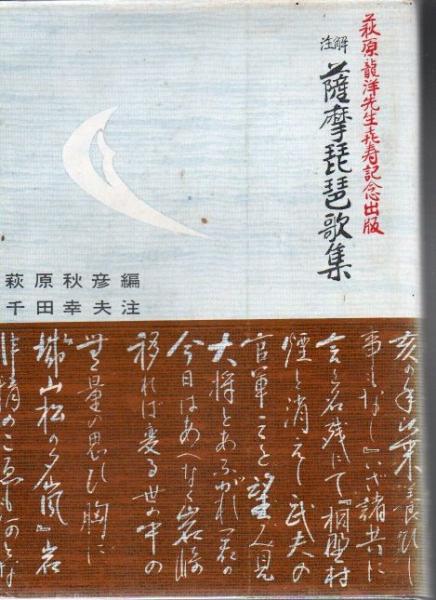 萩原龍洋先生㐂寿記念出版
注解
薩摩琵琶歌集
萩原秋彦編
千田幸夫注
事もなし』いざ諸共に
名残にて『桐野村
煙と消えし武夫の
官軍これを望み見
大将とあふがれ
今日はあへなく岩崎
移れば変る世の中の
無量の思ひ胸に
城山松の夕嵐』岩
非情の